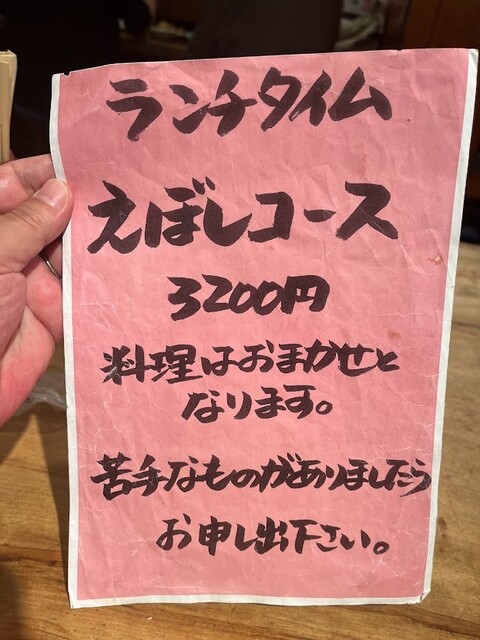 ランチタイム
えぼしコース
3200円
料理はおまかせと
なります。
苦手なものがありましたら
お申し出下さい。